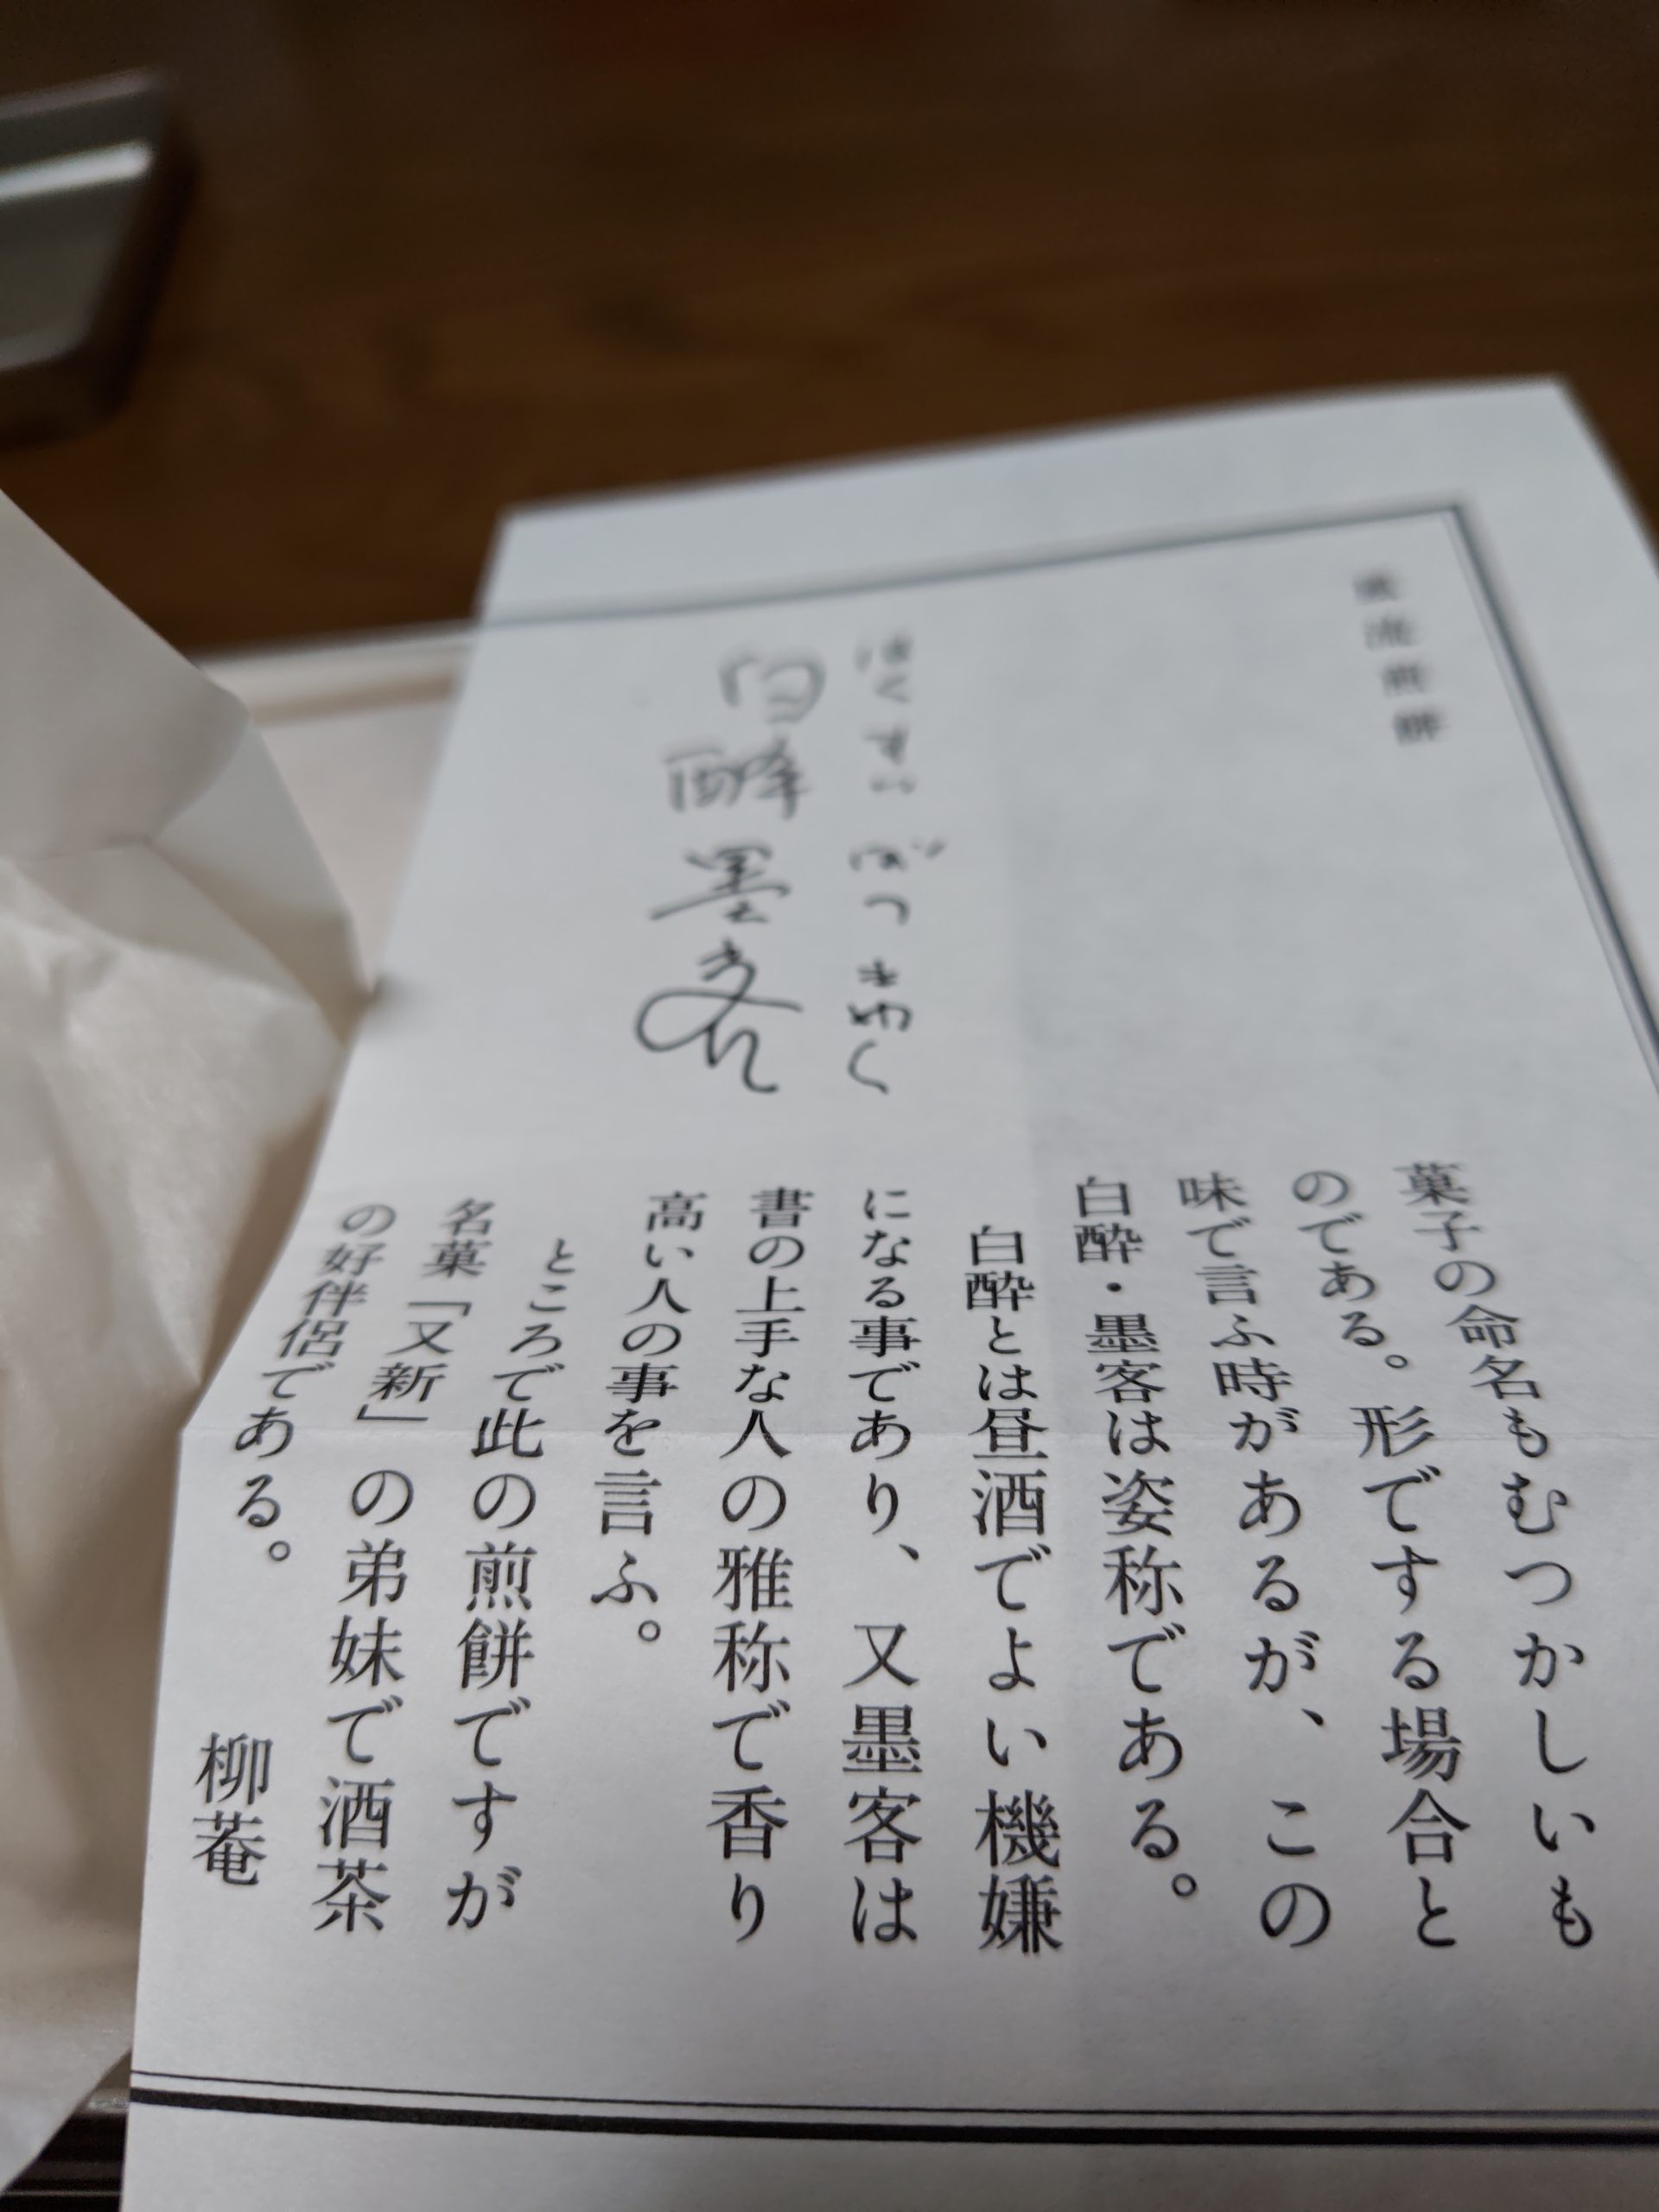 風流煎餅
はくすい ぼつきやく
白酔墨客
菓子の命名もむつかしいも
のである。形でする場合と
味で言ふ時があるが、この
白酔・墨客は姿称である。
白酔とは昼酒でよい機嫌
になる事であり、又墨客は
書の上手な人の雅称で香り
高い人の事を言ふ。
ところで此の煎餅ですが
名菓「又新」の弟妹で酒茶
の好伴侶である。
柳菴